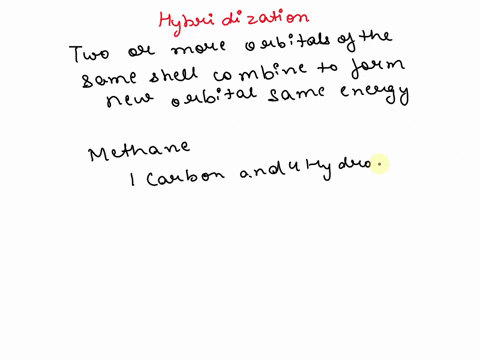 Hybridization
Two or more orbitals of the
same shell combine to form
new orbital same energy
Methane
1 Carbon and 4 Hydro